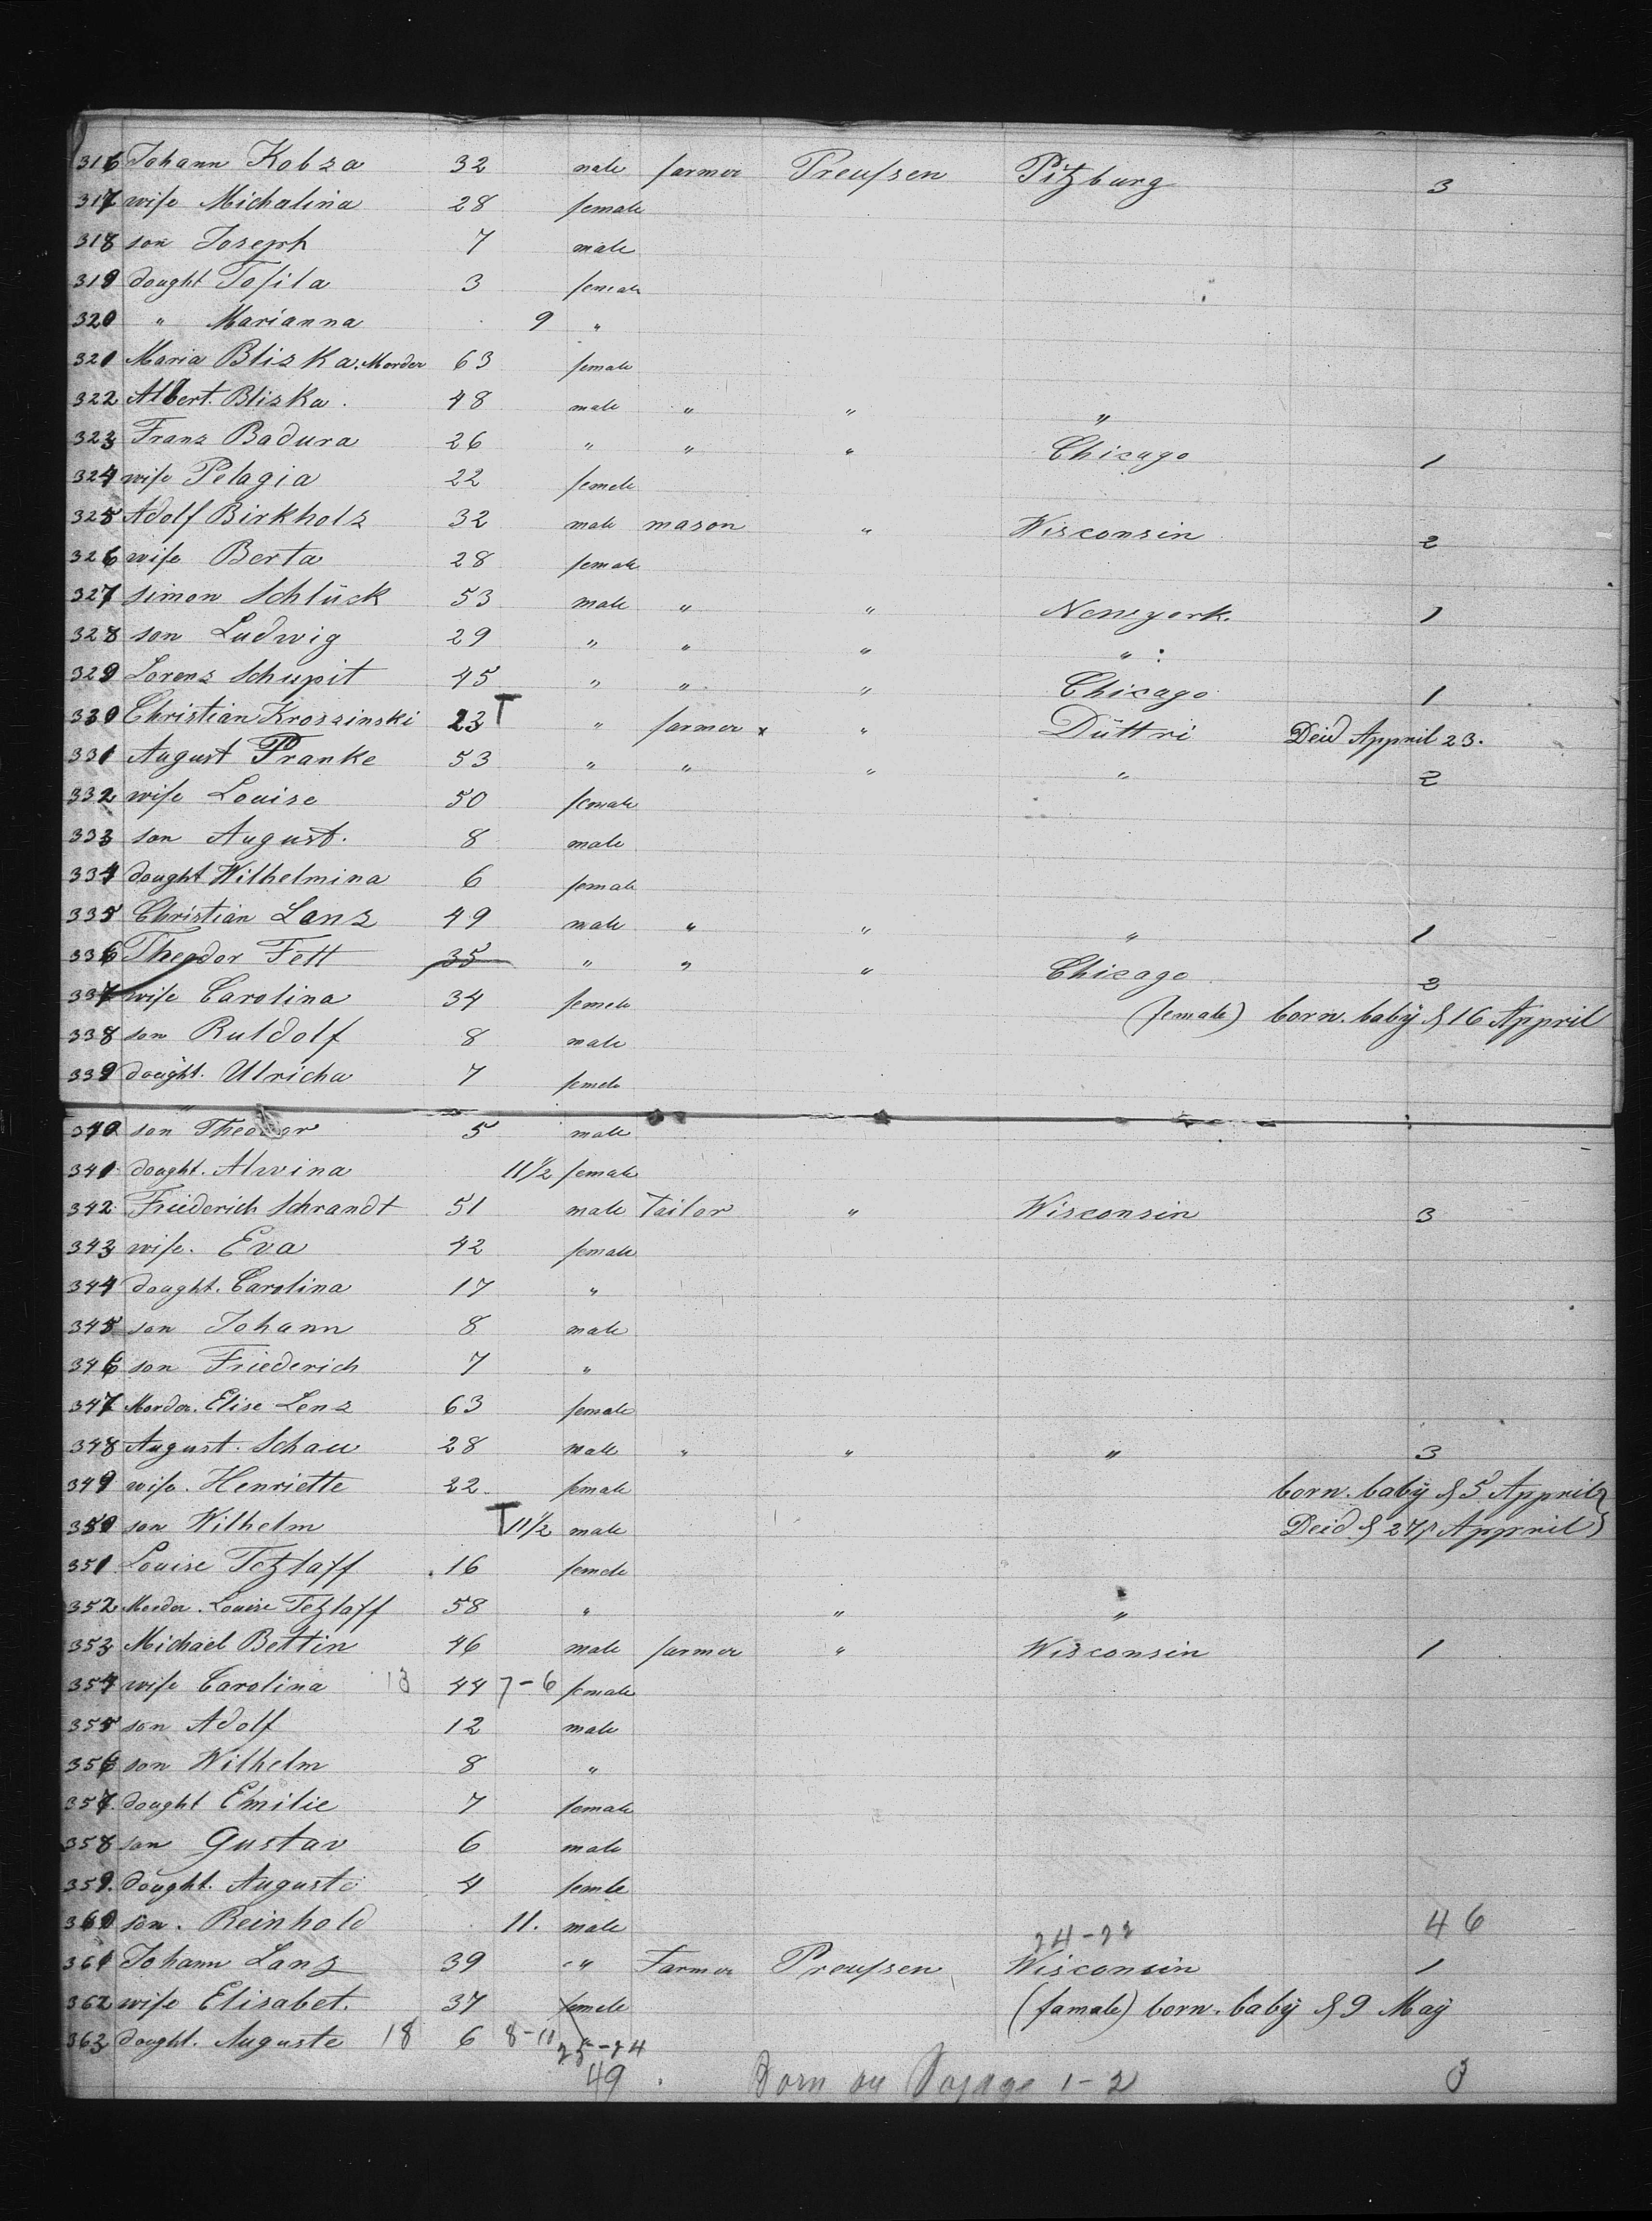 316 Johann Kobza 32 male farmer Preußen Pitzburg 3
317 wife Michalina 28 female
318 son Joseph 7 male
319 dought Tofila 3 female
320 " Marianna 9 "
321 Maria Bliska. Morder 63 female
322 Albert. Bliska. 48 male " " "
323 Franz Badura 26 " " " Chicago 1
324 wife Pelagia 22 female
325 Adolf Birkholz 32 male mason " Wisconsin 2
326 wife Berta 28 female
327 simon Schlück 53 male " " Newyork. 1
328 son Ludwig 29 " " " "
329 Lorenz Schupit 45 " " " Chicago 1
330 Christian Kroszinski 23 T " farmer x " Düttri Deid Appril 23.
331 August Pranke 53 " " " " 2
332 wife Louise 50 female
333 son August. 8 male
334 dought Wilhelmina 6 female
335 Christian Lanz 49 male " " " 1
336 Theodor Fett 35 " " " Chicago 2
337 wife Carolina 34 female (female) born. baby § 16 Appril
338 son Ruldolf 8 male
339 dought. Ulricha 7 female
340 son Theodor 5 male
341 dought. Alwina 11 1/2 female
342 Friederich Schrandt 51 male Tailor " Wisconsin 3
343 wife. Eva 42 female
344 dought. Carolina 17 "
345 son Johann 8 male
346 son Friederich 7 "
347 Morder. Elise Lenz 63 female
348 August. Schau 28 male " " " 3
349 wife. Henriette 22. female born. baby § 5 Appril
350 son Wilhelm T 11 1/2 male Deid § 27 Appril
351 Louise Tetzlaff 16 female
352 Morder. Louise Tetzlaff 58 " " "
353 Michael Bettin 46 male farmer " Wisconsin 1
354 wife Carolina 13 44 7-6 female
355 son Adolf 12 male
356 son Wilhelm 8 "
357. dought Emilie 7 female
358 son Gustav 6 male
359. dought. Auguste 4 femle
360 son. Reinhold 11. male 46
24-22
361 Johann Lanz 39 " Farmer Preußen Wisconsin 1
362 wife Elisabet. 37 female (famale) born. baby § 9 May
363 dought. Auguste 18 6 8-11 "
25-24
49. Born on Voyage 1-2 3